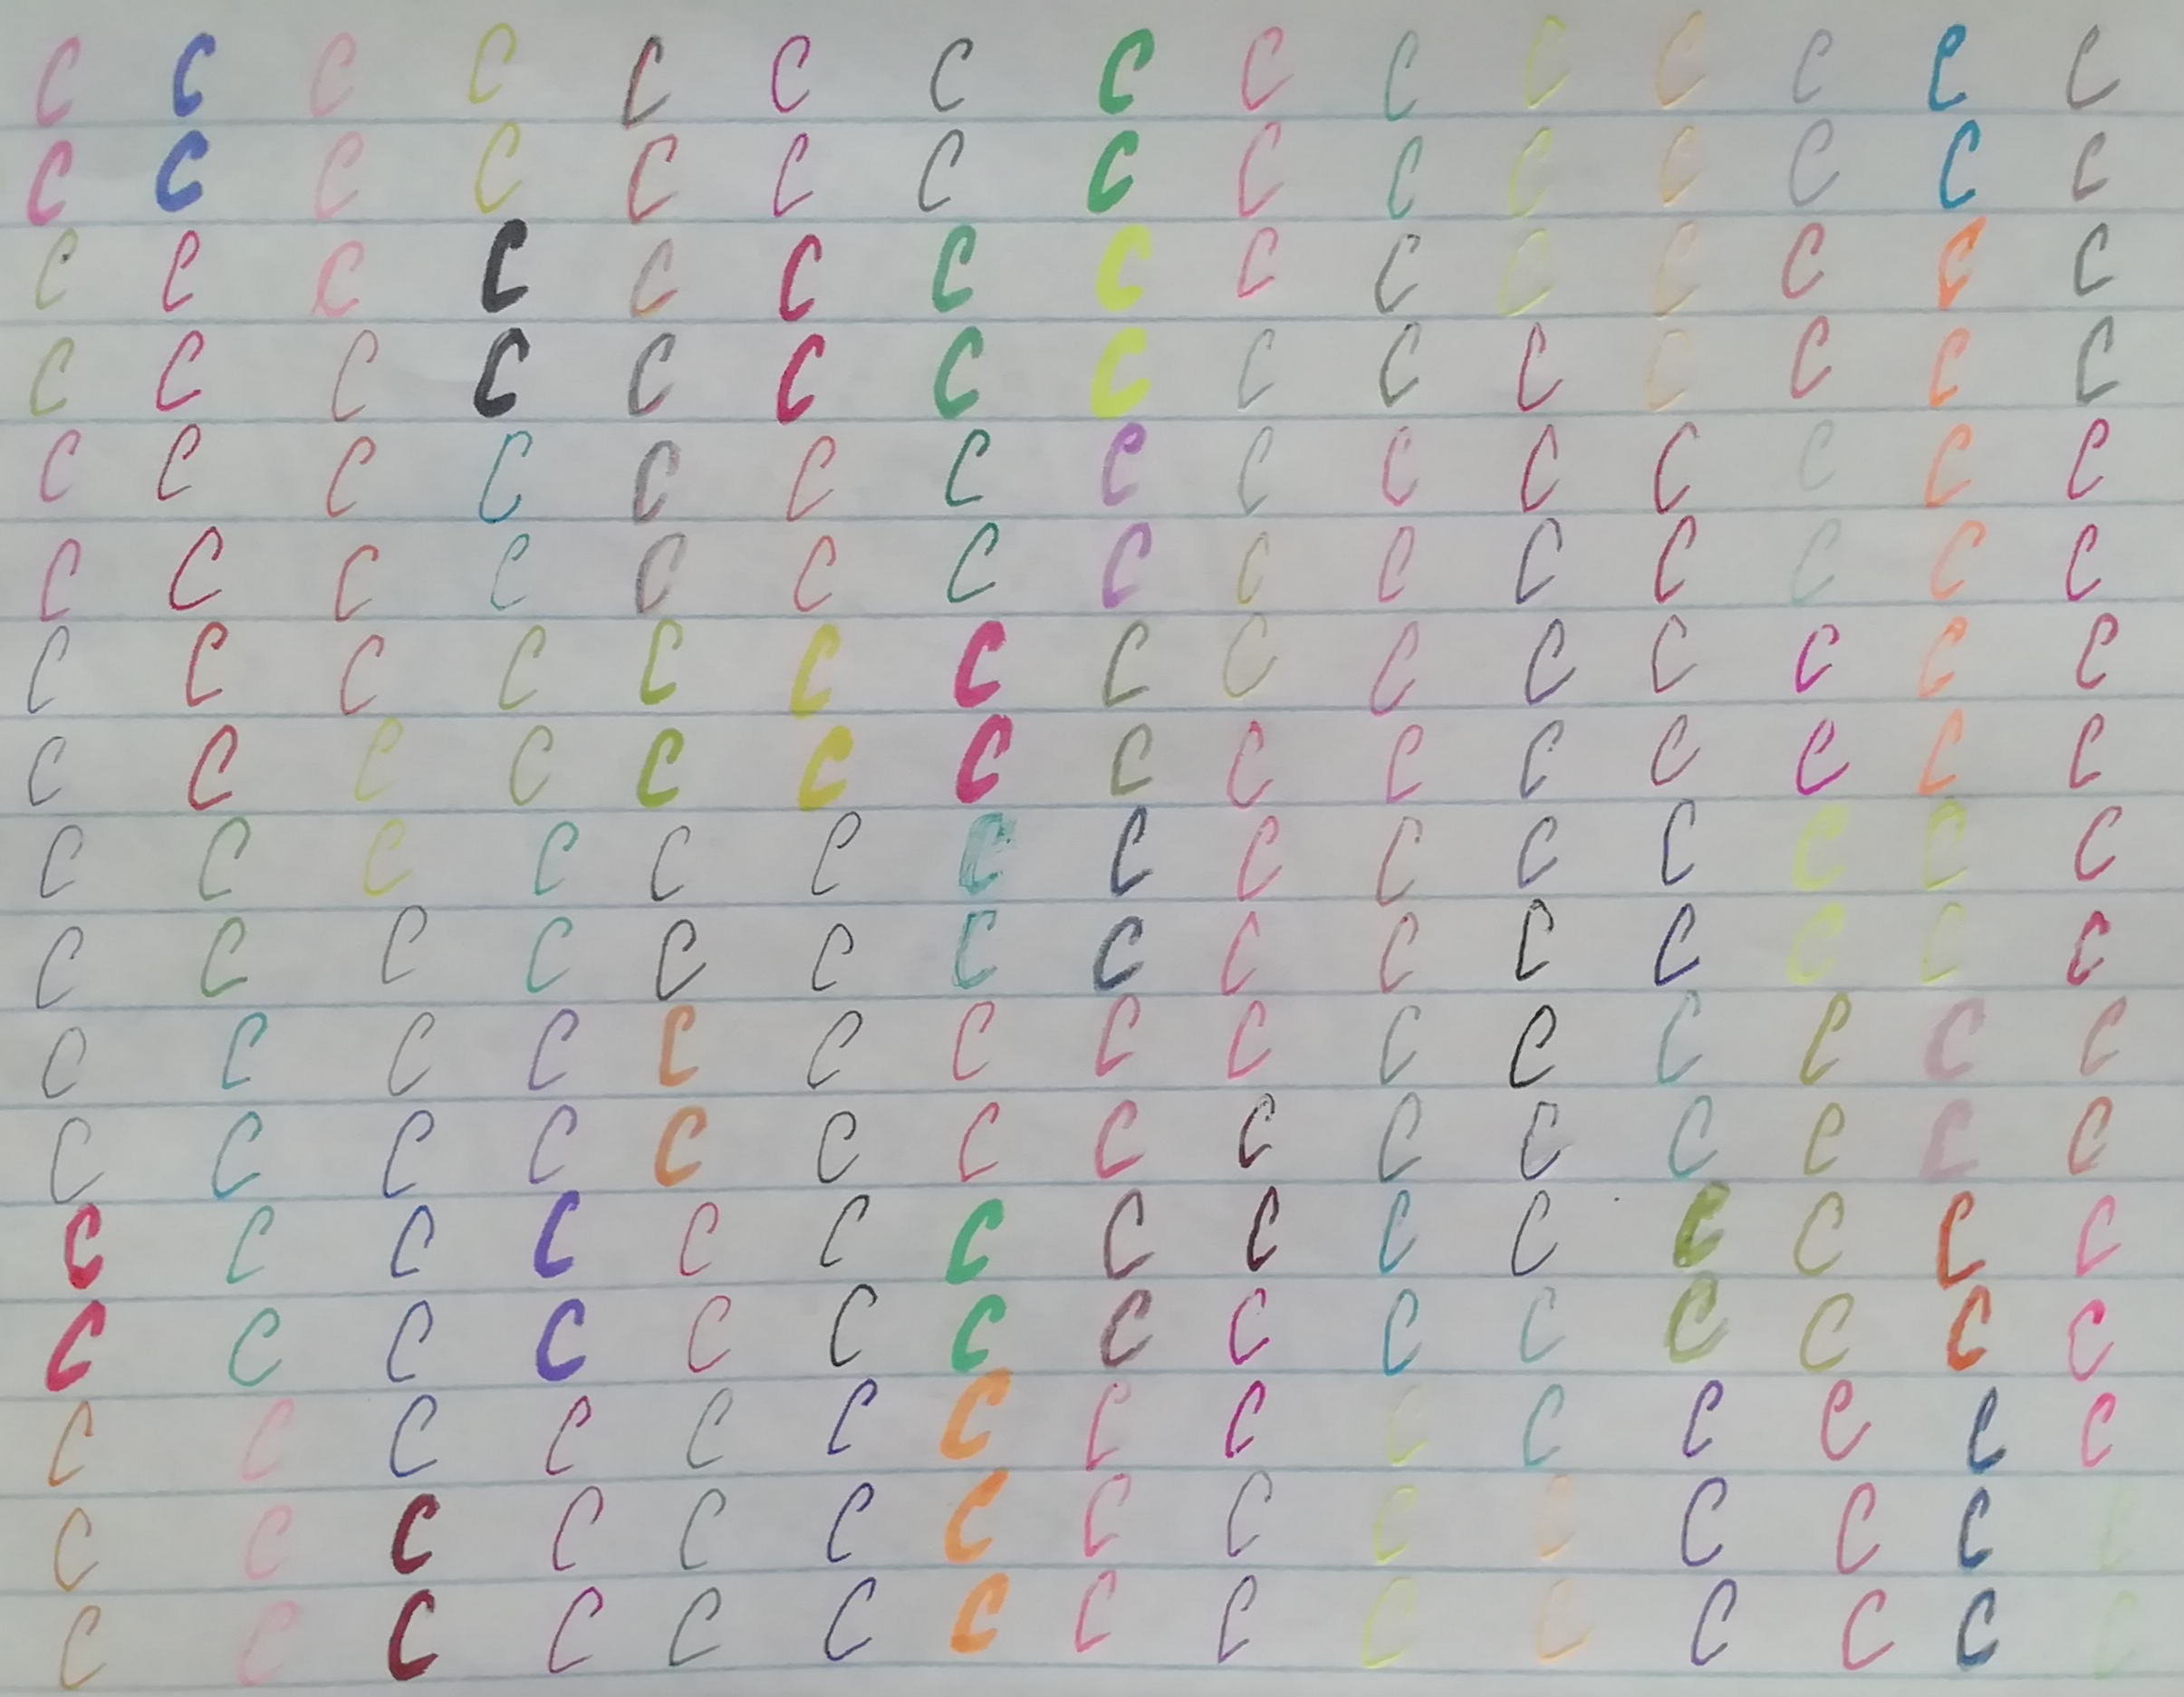 C C C C C C C C C C C C C C C
C C C C C C C C C C C C C C C
C C C C C C C C C C C C C C C
C C C C C C C C C C C C C C C
C C C C C C C C C C C C C C C
C C C C C C C C C C C C C C C
C C C C C C C C C C C C C C C
C C C C C C C C C C C C C C C
C C C C C C C C C C C C C C C
C C C C C C C C C C C C C C C
C C C C C C C C C C C C C C C
C C C C C C C C C C C C C C C
C C C C C C C C C C C C C C C
C C C C C C C C C C C C C C C
C C C C C C C C C C C C C C C
C C C C C C C C C C C C C C C
C C C C C C C C C C C C C C C